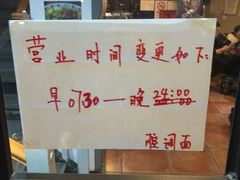 营业时间变更如下:
早0730—晚24:00